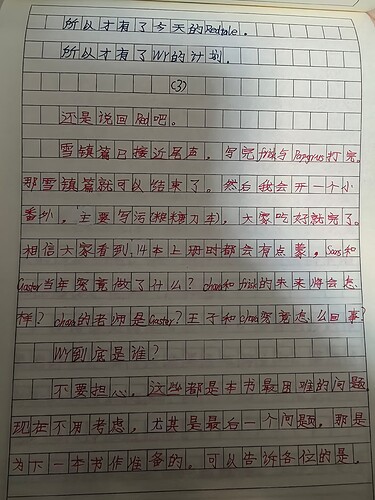 所以才有了今天的Redtale。
所以才有了WY的计划。
(3)
还是说回剧吧。
雪镇篇已接近尾声，写完frisk与Papyrus打完。
那雪镇篇就可以结束了。然后我会开一个小
番外。主要写污(粗糙刀本)，大家吃好就完了。
相信大家看到,14本上册时都会有点蒙。Sans和
Gaster当年究竟做了什么？chara和frisk的未来将会怎
样？chara的老师是Gaster？王子和chara究竟怎么回事？
WY到底是谁？
不要担心，这些都是本书最困难的问题
现在不用考虑，尤其是最后一个问题，那是
为下一本书作准备的。可以告诉各位的是，